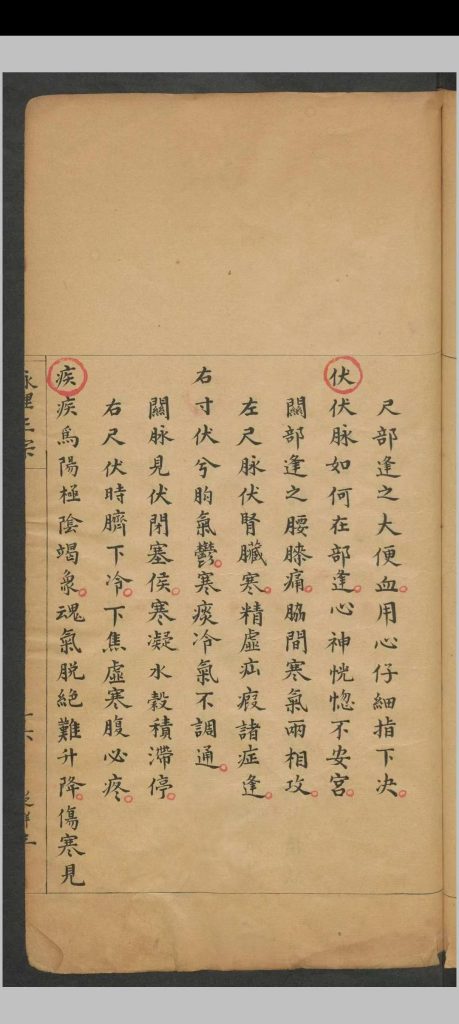 尺部逢之大便血用心仔細指下决
伏伏脉如何在部逢心神恍惚不安宮
關部逢之腰膝痛脇間寒氣兩相攻
左尺脉伏腎臟寒精虛疝瘕諸症逢
右寸伏兮胸氣鬱寒痰冷氣不調通
關脉見伏閉塞侯寒凝水穀積滯停
右尺伏時臍下冷下焦虛寒腹必疼
疾疾爲陽極陰竭象魂氣脱絕難升降傷寒見